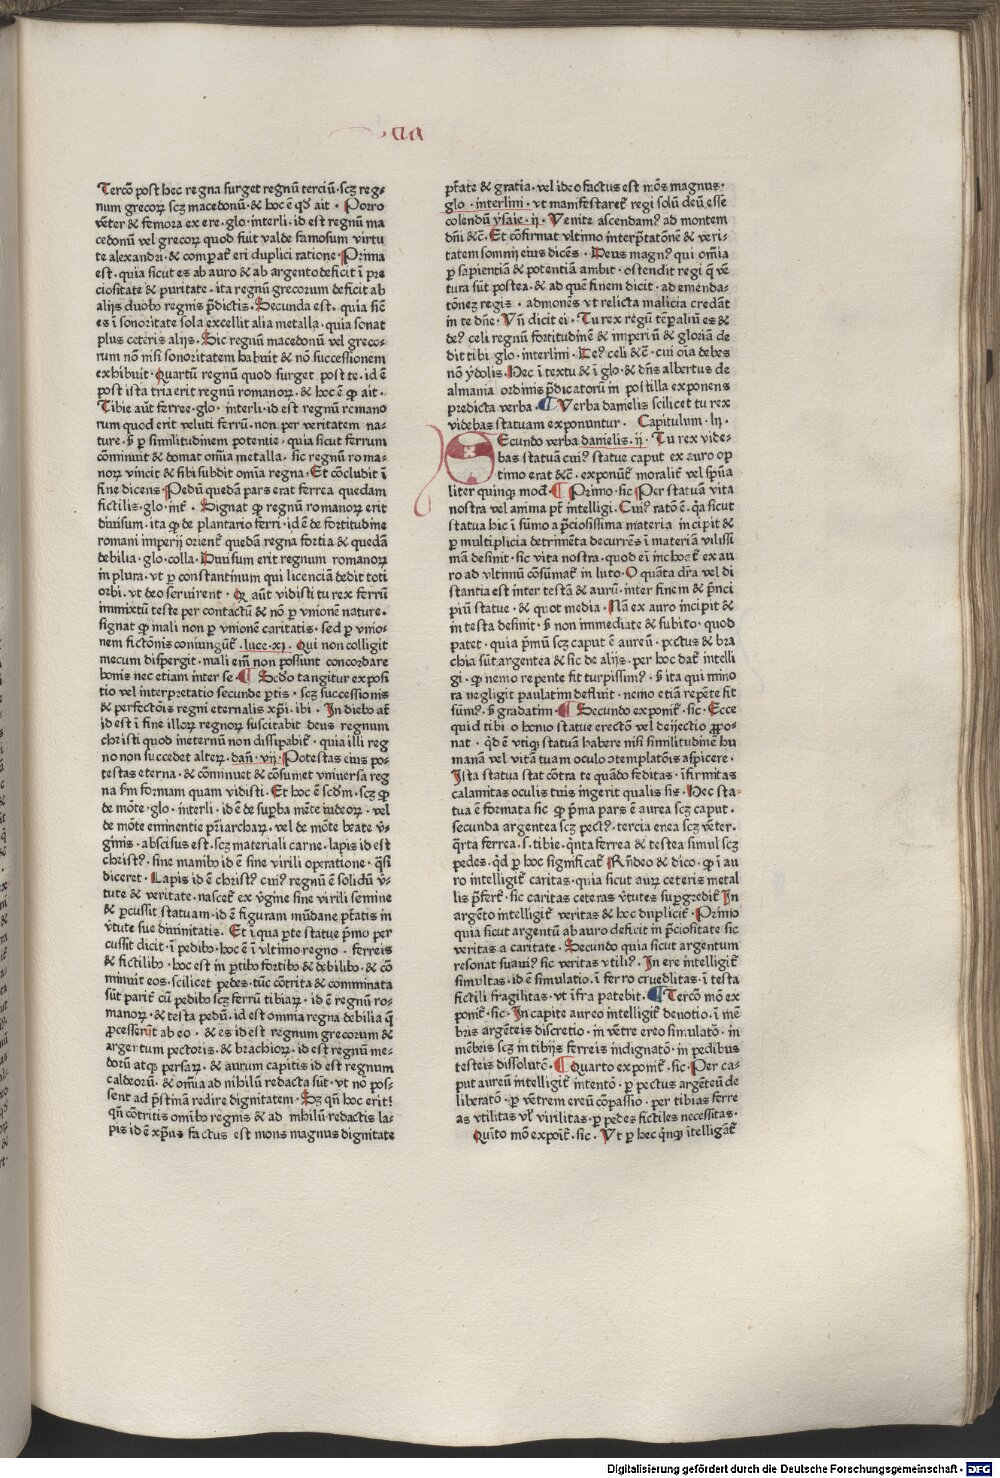 Tercõ post hec regna surget regnũ terciũ·scʒ reg-
num grecoꝝ scʒ macedonũ·& hoc ē qđ ait · Porro
vẽter & femora ex ere·glo·interli·id est regnũ ma
cedonũ vel grecoꝝ quod fuit valde famosum virtu
te alexandri·& compat᷑ eri duplici ratione·Prima
est·quia sicut es ab auro & ab argento deficit ī pre
ciositate & puritate·ita regnũ grecorum deficit ab
alijs duobꝰ regnis p̃dictis·Secunda est·quia sic̃
es ī sonoritate sola excellit alia metalla·quia sonat
plus ceteris alijs·Sic regnũ macedonũ vel greco-
rum nõ nisi sonoritatem habuit & nõ successionem
exhibuit·Quartũ regnũ quod surget post te·id ē
post ista tria erit regnũ romanoꝝ·& hoc ē ꝙ ait·
Tibie aũt ferree·glo·interli·id est regnũ romano
rum quod erit veluti ferrũ·non per veritatem na-
ture·s̃ ꝑ similitudinem potencie·quia sicut ferrum
cõminuit & domat om̃ia metalla·sic regnũ roma-
noꝝ vincit & sibi subdit omĩa regna·Et cõcludit ī
fine dicens·Pedũ quedã pars erat ferrea quedam
fictilis·glo·int᷑·Signat ꝙ regnũ romanoꝝ erit
diuisum·ita ꝙ de plantario ferri·id ē de fortitudine
romani imperij orient᷑ quedã regna fortia & quedã
debilia·glo·colla·Diuisum erit regnum romanoꝝ
in plura·vt ꝑ constantinum qui licenciã dedit toti
orbi·vt deo seruirent·Qꝛ aũt vidisti tu rex ferrũ
immixtũ teste per contactũ & nõ ꝑ vnionẽ nature·
signat ꝙ mali non ꝑ vnionẽ caritatis·sed ꝑ vnio-
nem fictõnis coniungũt᷑·luce·xj·Qui non colligit
mecum dispergit·mali em̃ non possunt concordare
bonis nec etiam inter se·¶ Scd̃o tangitur exposi
tio vel interpretatio secunde ꝑtis·scʒ successionis
& perfectõis regni eternalis xp̃i·ibi·In diebꝰ at᷑
id est ī fine illoꝝ regnoꝝ suscitabit deus regnum
christi quod ineternũ non dissipabit᷑·quia illi reg
no non succedet alteꝝ·dañ·vij·Potestas eius po-
testas eterna·& cõminuet & cõsumet vniuersa reg
na s̃m formam quam vidisti·Et hoc ē scd̃m·scʒ ꝙ
de mõte·glo·interli·id ē de suꝑba mẽte iudeoꝝ·vel
de mõte eminentie pr̃iarchaꝝ·vel de mõte beate v̾-
ginis·abscisus est·scʒ materiali carne·lapis id est
christꝰ·sine manibꝰ id ē sine virili operatione·q̃si
diceret·Lapis id ē christꝰ cuiꝰ regnũ ē solidũ v̾-
tute & veritate·nascet᷑ ex v̾gine sine virili semine
& ꝑcussit statuam·id ē figuram mũdane p̃tatis in
v̾tute sue diuinitatis·Et ī qua ꝑte statue p̃mo per
cussit dicit·ī pedibꝰ·hoc ē ī vltimo regno·ferreis
& fictilibꝰ·hoc est in ꝑtibꝰ fortibꝰ & debilibꝰ·& cõ
minuit eos·scilicet pedes·tũc cõtrita & comminata
sũt parit᷑ cũ pedibꝰ scʒ ferrũ tibiaꝝ·id ē regnũ ro-
manoꝝ·& testa pedũ·id est omnia regna debilia q̃
ꝓcesserũt ab eo·& es id est regnum grecorum &
argentum pectoris·& brachioꝝ·id est regnũ me-
dorũ atqꝫ persaꝝ·& aurum capitis id est regnum
caldeorũ·& om̃ia ad nihilũ redacta sũt·vt nõ pos-
sent ad p̃stinã redire dignitatem·Sʒ qñ hoc erit?
qñ cõtritis omĩbꝰ regnis & ad nihilũ redactis la-
pis id ē xp̃us factus est mons magnus dignitate
p̃tate & gratia·vel ideo factus est mõs magnus·
glo·interlini·vt manifestaret᷑ regi solũ deũ esse
colendũ ysaie·ij·Venite ascendamꝰ ad montem
dñi &c̃·Et cõfirmat vltimo interp̃tatõnẽ & veri-
tatem somnij eius dicẽs·Deus magnꝰ qui om̃ia
ꝑ sapientiã & potentiã ambit·ostendit regi q̃ vẽ
tura sũt postea·& ad quẽ finem dicit·ad emenda-
tõnez regis·admonẽs vt relicta malicia credãt
in te dñe·Vñ dicit ei·Tu rex regũ tẽꝑaliũ es &
deꝰ celi regnũ fortitudinẽ & imperiũ & gloriã de
dit tibi·glo·interlini·Deꝰ celi &c̃·cui oĩa debes
nõ ydolis·Hec ī textu & ī glo·& dñs albertus de
almania ordinis p̃dicatorũ in postilla exponens
predicta verba·¶ Verba danielis scilicet tu rex
videbas statuam exponuntur· Capitulum·lij·
Secundo verba danielis·ij·Tu rex vide-
bas statuã cuiꝰ statue caput ex auro op
timo erat &c̃·exponũt᷑ moralit᷑ vel sp̃ua
liter quinqꝫ mod̃·¶ Primo·sic·Per statuã vita
nostra vel anima pt᷑ intelligi·Cuiꝰ ratõ ē·q̃a sicut
statua hic ī sũmo a p̃ciosissima materia incipit &
ꝑ multiplicia detrimẽta decurrẽs ī materiã vilissi
mã desinit·sic vita nostra·quod eī inchoat᷑ ex au
ro ad vltimũ cõsũmat᷑ in luto·O quãta dr̃a vel di
stantia est inter testã & aurũ·inter finem & p̃nci
piũ statue·& quot media·Nã ex auro incipit &
in testa desinit·s̃ non immediate & subito·quod
patet·quia p̃mũ scʒ caput ē aureũ·pectus & bra
chia sũt argentea & sic de alijs·per hoc dat᷑ intelli
gi·ꝙ nemo repente fit turpissimꝰ·s̃ ita qui mino
ra negligit paulatim defluit·nemo etiã repẽte fit
sũmꝰ·s̃ gradatim·¶ Secundo exponit᷑·sic·Ecce
quid tibi o homo statue erectõ vel deiectio ꝓpo-
nat·qđ ē vtiqꝫ statuã habere nisi similitudinẽ hu
manã vel vitã tuam oculo ꝯtemplatõis aspicere·
Ista statua stat cõtra te quãdo feditas·īfirmitas
calamitas oculis tuis ingerit qualis sis·Hec sta-
tua ē formata sic ꝙ p̃ma pars ē aurea scʒ caput·
secunda argentea scʒ pectꝰ·tercia enea scʒ vẽter·
q̃rta ferrea·s·tibie·q̃nta ferrea & testea simul scʒ
pedes·qđ ꝑ hoc significat᷑·Rñdeo & dico·ꝙ ī au
ro intelligit᷑ caritas·quia sicut auꝝ ceteris metal
lis p̃fert᷑·sic caritas ceteras v̾tutes suꝑgredit᷑·In
argẽto intelligit᷑ veritas & hec duplicit᷑·Primo
quia sicut argentũ ab auro deficit in p̃ciositate sic
veritas a caritate·Secundo quia sicut argentum
resonat suauiꝰ sic veritas vtiliꝰ·In ere intelligit᷑
simultas·id ē simulatio·ī ferro crudelitas·ī testa
fictili fragilitas·vt īfra patebit·¶ Tercõ mõ ex
ponit᷑·sic·In capite aureo intelligit᷑ deuotio·ī mẽ
bris argẽteis discretio·in vẽtre ereo simulatõ·in
mẽbris scʒ in tibijs ferreis indignatõ·in pedibus
testeis dissolutõ·¶ Quarto exponit᷑·sic·Per ca-
put aureũ intelligit᷑ intentõ·ꝑ pectus argẽteũ de
liberatõ·ꝑ vẽtrem ereũ cõpassio·per tibias ferre
as vtilitas vl᷑ virilitas·ꝑ pedes fictiles necessitas·
Quĩto mõ expoĩt᷑·sic·Vt ꝑ hec q̃nqꝫ ītelligãt᷑
Digitalisierung gefördert durch die Deutsche Forschungsgemeinschaft - DFG